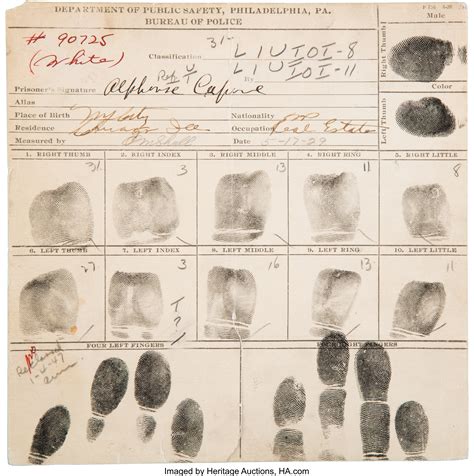 DEPARTMENT OF PUBLIC SAFETY, PHILADELPHIA, PA.
BUREAU OF POLICE
Male
# 90725
(White)
31-
Classification L 1 U IOI-8
Ref. L 1 U IOI-11
By
Prisoner's Signature Alphonse Capone
Alias
Place of Birth N.Y. City Nationality
Residence Chicago Ills Occupation Real Estate
Measured by Date 5-17-29
Right Thumb
Color
Left Thumb
1. RIGHT THUMB 2. RIGHT INDEX 3. RIGHT MIDDLE 4. RIGHT RING 5. RIGHT LITTLE
31 3 13 11 8
6. LEFT THUMB 7. LEFT INDEX 8. LEFT MIDDLE 9. LEFT RING 10. LEFT LITTLE
27 3 16 13 11
T
?
FOUR LEFT FINGERS FOUR RIGHT FINGERS
Imaged by Heritage Auctions, HA.com